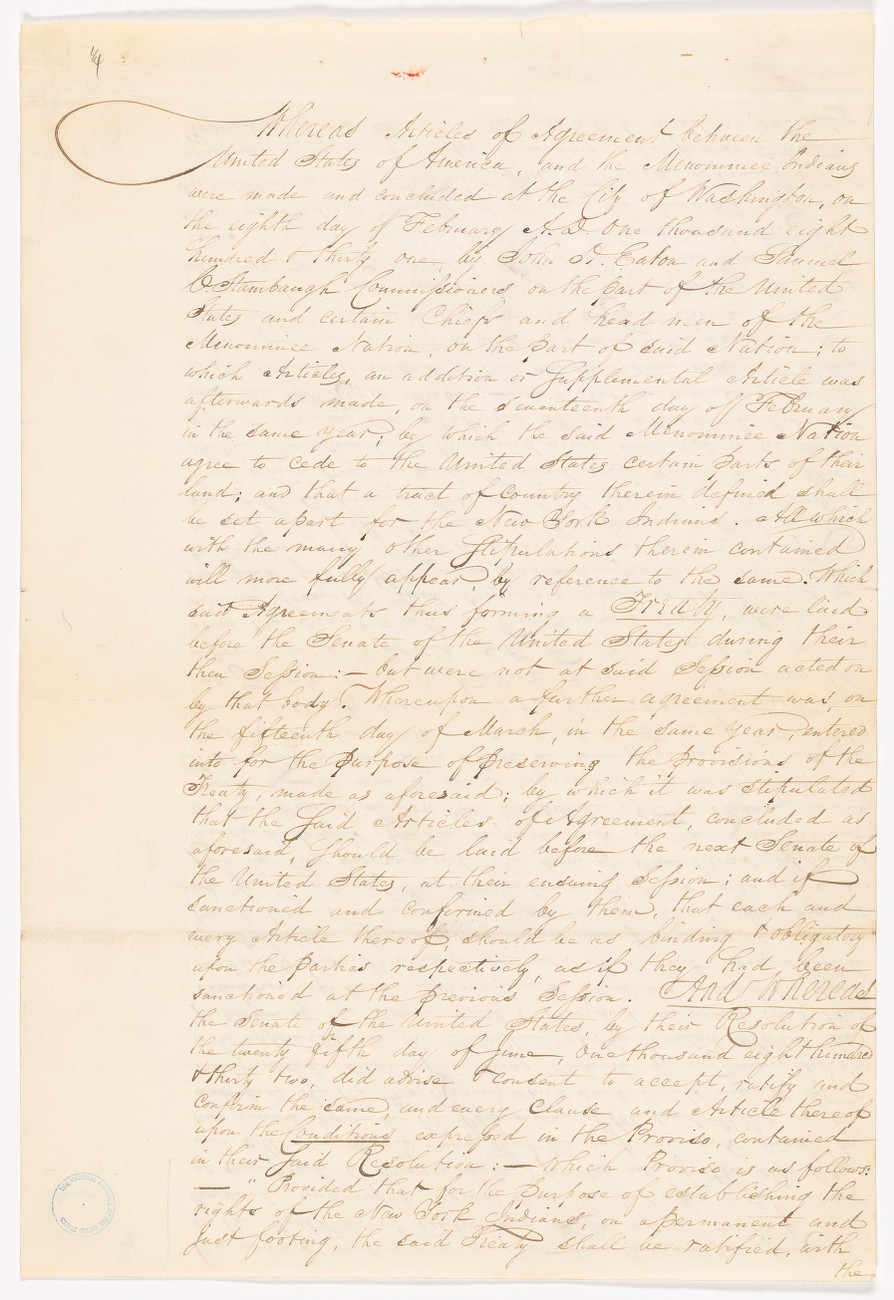 Whereas Articles of Agreement between the
United States of America, and the Menominee Indians
were made and concluded at the City of Washington, on
the eighth day of February A.D. One thousand eight
hundred & thirty one, by John H. Eaton and Samuel
C Stambaugh Commissioners on the part of the United
States and certain Chiefs and head men of the
Menominee Nation, on the part of said Nation; to
which Articles, an addition or Supplemental Article was
afterwards made, on the seventeenth day of February
in the same year; by which the said Menominee Nation
agree to cede to the United States certain parts of their
land; and that a tract of country therein defined shall
be set apart for the New York Indians. All which
with the many other Stipulations therein contained
will more fully appear, by reference to the same. Which
said Agreements thus forming a Treaty, were laid
before the Senate of the United States during their
then Session:— but were not at said Session acted on
by that body. Whereupon a further agreement was, on
the fifteenth day of March, in the same year, entered
into for the purpose of preserving the provisions of the
Treaty, made as aforesaid; by which it was stipulated
that the Said Articles of Agreement, concluded as
aforesaid, Should be laid before the next Senate of
the United States, at their ensuing Session; and if
sanctioned and confirmed by them, that each and
every Article thereof, should be as binding & obligatory
upon the parties respectively, as if they had been
sanctioned at the previous Session. And Whereas
the Senate of the United States, by their Resolution of
the twenty fifth day of June, One thousand eight hundred
& thirty two, did advise & consent to accept, ratify and
confirm the same, and every Clause and Article thereof
upon the Conditions expressed in the Proviso, contained
in their Said Resolution:— Which Proviso is as follows:
— "Provided that for the purpose of establishing the
rights of the New York Indians, on a permanent and
just footing, the said Treaty shall be ratified, with
the